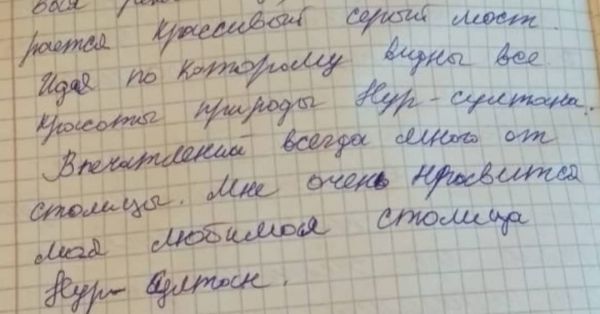 рается красивый серый мост.
Идя по которому видны все
красоты природы Нур-султана.
Впечатлений всегда много от
столицы. Мне очень нравится
моя любимая столица
Нур-Султан.